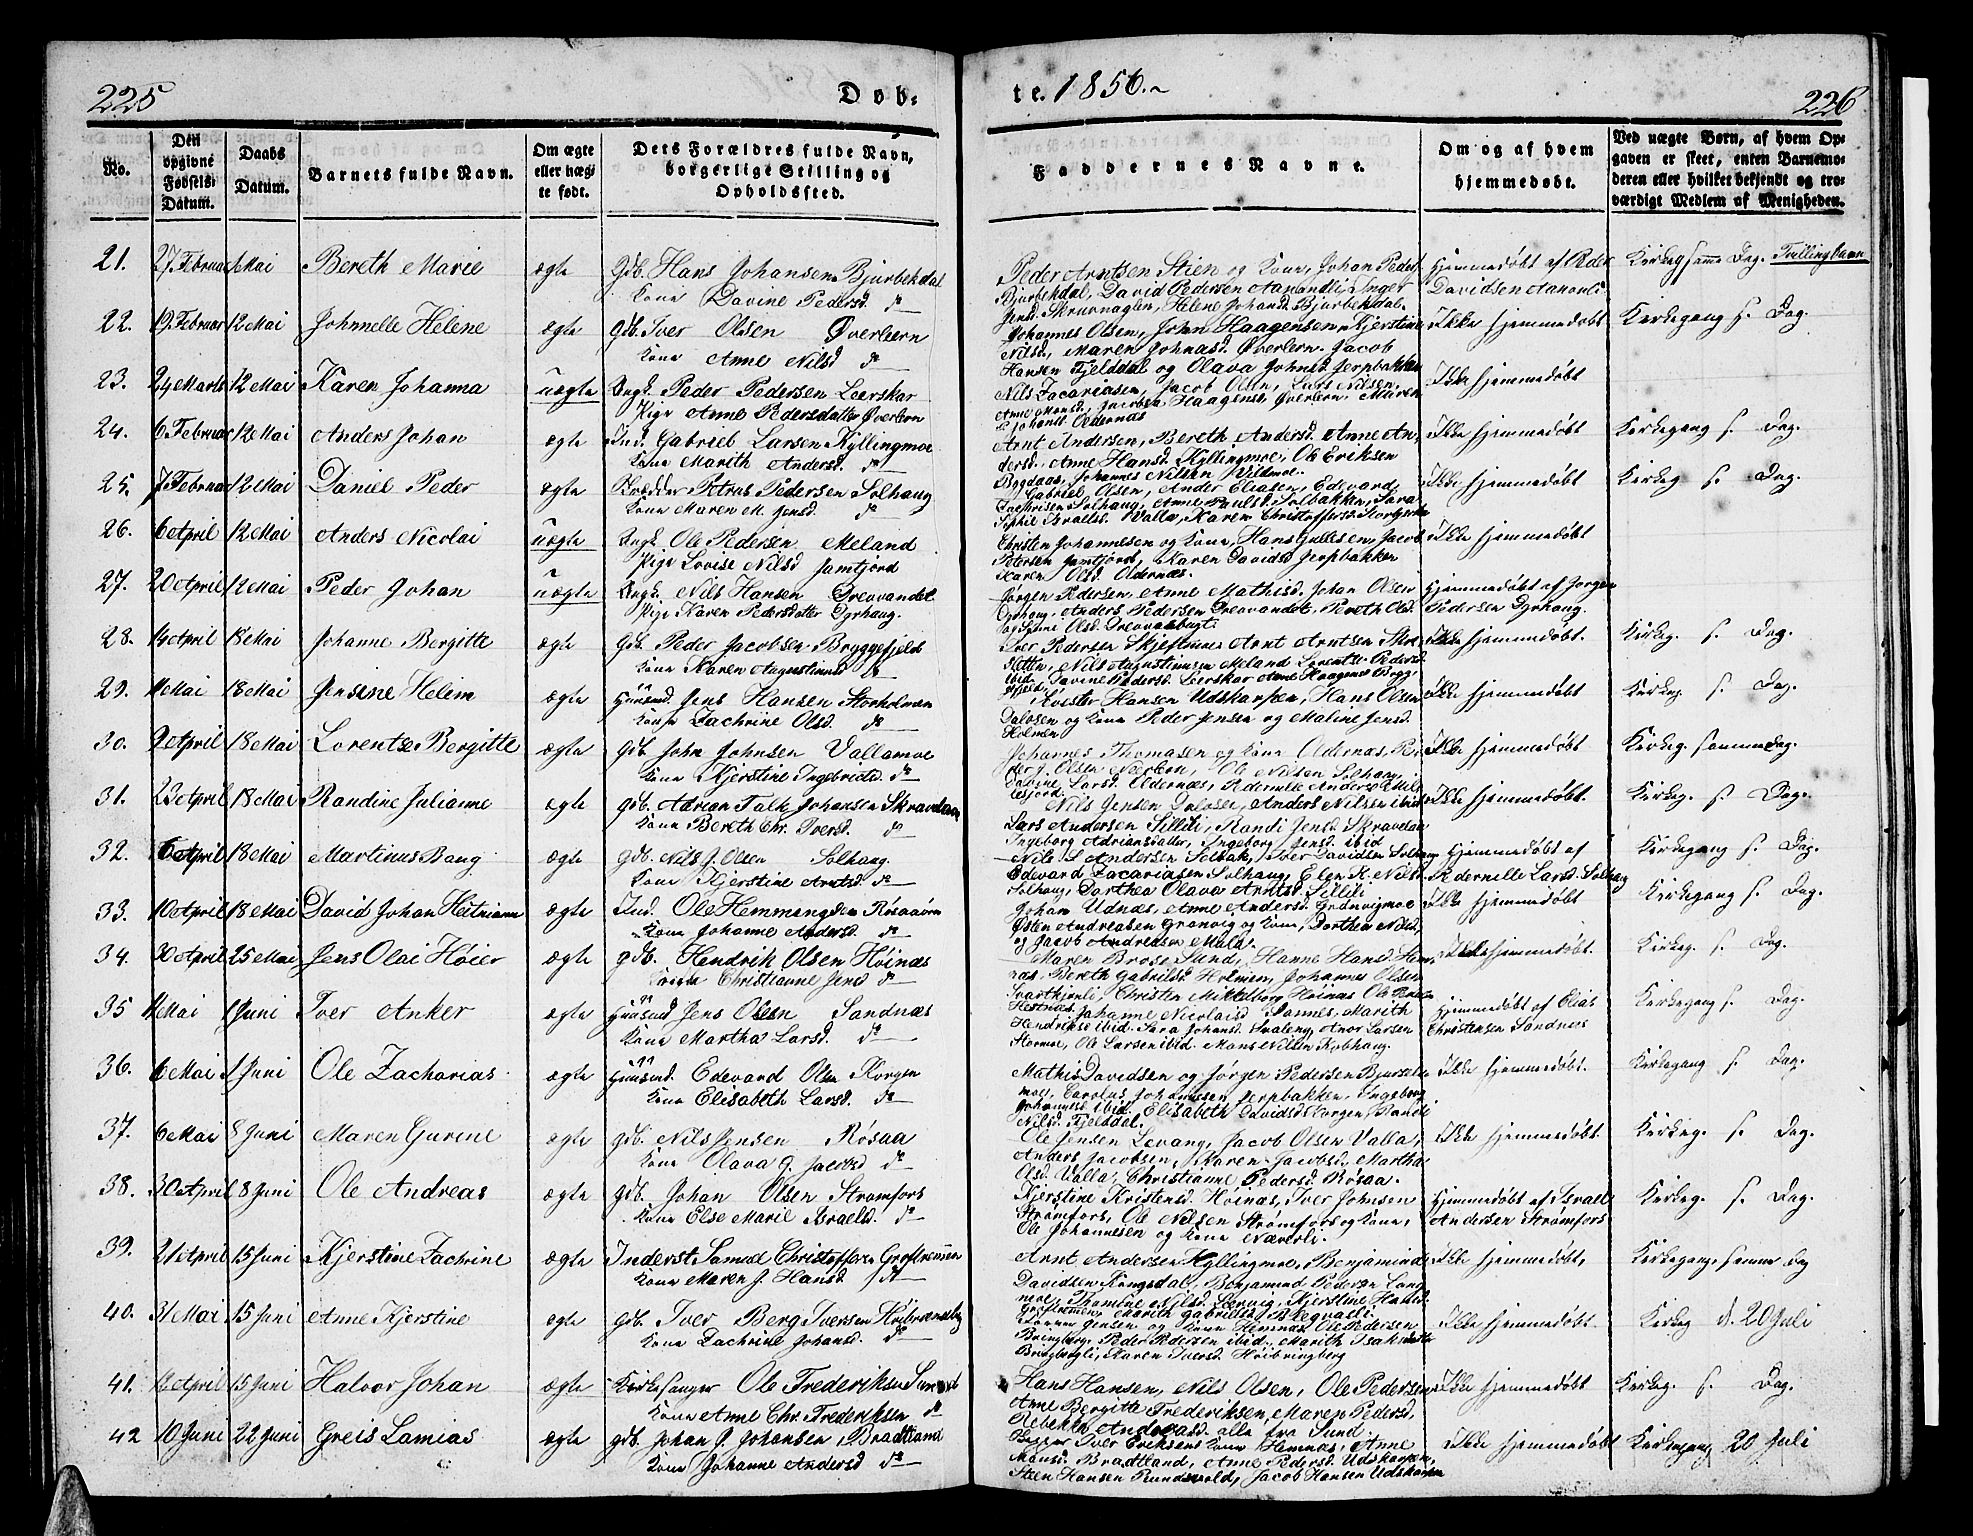 225
Døb-
No.
Den opgivne Fødsels-Datum.
Daabs Datum.
Barnets fulde Navn.
Om ægte eller uægte født.
Dets Forældres fulde Navn, borgerlige Stilling og Opholdssted.
21. 27 Februar 1 Mai Bereth Marie ægte Gdb. Hans Johansen Bjurbekdal
Kone Davine Pedersd. do
22. 19 Februar 12 Mai Johnelle Helene ægte Gdb. Iver Olsen Øverleern
Kone Anne Nilsd do
23. 24 Marts 12 Mai Karen Johanna uægte Ungk. Peder Pedersen Leerskar
Pige Anne Pedersdatter Øverleern
24. 6 Februar 12 Mai Anders Johan ægte Ind. Gabriel Larsen Kyllingmoe
Kone Marith Andersd. do
25. 7 Februar 12 Mai Daniel Peder ægte Petrus Pedersen Solhaug
Kone Maren M. Jensd. do
26. 6 April 12 Mai Anders Nicolai uægte Ungk. Ole Pedersen Meland
Pige Lovise Nilsd Jamtjord
27. 20 April 12 Mai Peder Johan uægte Ungk. Nils Hansen Drevvandet
Pige Karen Pedersdatter Dyrhaug.
28. 14 April 18 Mai Johanne Bergitte ægte Gdb. Peder Jacobsen Bryggefjeld
Kone Karen Augustinusd do
29. 1 Mai 18 Mai Jensine Helim ægte Huusmd. Jens Hansen Storholmen
Kone Zachrine Olsd. do
30. 9 April 18 Mai Lorentze Bergitte ægte Gdb. John Johnsen Vallamoe
Kone Kjerstine Ingebrictsd. do
31. 23 April 18 Mai Randine Julianne ægte Gdb. Adrian Falk Johansen Skravlaaen
Kone Bereth Chr. Iversd. do
32. 6 April 18 Mai Martinus Bang ægte Gdb. Nils J. Olsen Solhaug.
Kone Kjerstine Arntsd. do
33. 10 April 18 Mai David Johan Heitmann ægte Ind. Ole Hemmingsen Røsaaøren
Kone Johanne Andersd. do
34. 30 April 25 Mai Jens Olai Høier ægte Gdb. Hendrik Olsen Høinæs
Kone Christianne Jensd do
35 1 Mai 1 Juni Iver Anker ægte Huusmd Jens Olsen Sandnæs
Kone Martha Larsd. do
36. 6 Mai 1 Juni Ole Zacharias ægte Huusmd. Edevard Olsen Korgen
Kone Elisabeth Larsd. do
37. 6 Mai 8 Juni Maren Gurine ægte Gdb. Nils Jensen Røsaa
Kone Olava J. Jacobsd do
38. 30 April 8 Juni Ole Andreas ægte Gdb. Johan Olsen Strømfors
Kone Else Marie Israelsd. do
39. 21 April 15 Juni Kjerstine Zachrine ægte Inderst Samuel Christoffersen Groftremmen
Kone Maren J. Hansd do
40. 31 Mai 15 Juni Anne Kjerstine ægte Gdb. Iver Berg Iversen
Kone Zachrine Johansd. do
41. 13 April 15 Juni Halvor Johan ægte Kirkesanger Ole Frederiksen Sund
Kone Anne Chr. Frederiksen do
42 10 Juni 22 Juni Greis Lamias ægte Gdb. Johan J. Johansen, Bradtland
Kone Johanne Andersd do
te. 1856.
226
Faddernes Navne.
Om og af hvem hjemmedøbt.
Ved uægte Børn, af hvem Opgaven er skeet, enten Barnemoderen eller hvilket bekjendt og troværdigt Medlem af Menigheden.
Peder Arntsen Stien og Kone, Johan Peders. Hjemmedøbt af Peder Kirkeg samme Dag. Tvillingbarn
Bjurbekdal, David Pedersen Aanonli, Inger Davidsen Aanonli.
Jensd. Skruvhagen, Helene Johansd. Bjurbekdal.
Johannes Olsen, John Haagensen, Kjerstine Ikke hjemmedøbt Kirkegang s. Dag.
Nilsd, Maren Johnasd. Øverleern. Jacob
Hansen Fjelddal og Olava Johnsd. Jerpbakken
Nils Zacariasen, Jacob Olsen, Lars Nilsen, Ikke hjemmedøbt
Anne Mansd., Jacobea Haagensd., Øverleern, Maren
Johansd. Oldernæs
Arnt Andersen, Bereth Andersd. Anne An- Ikke hjemmedøbt Kirkegang s. Dag.
dersd., Anne Hansd. Kyllingmoe, Ole Eriksen
Bygdaas, Johannes Nilsen Vildmoe.
Gabriel Olsen, Ander Eliasen, Edevard Ikke hjemmedøbt Kirkeg s. Dag.
Zachrisen Solhaug, Anne Paulsd. Solbakken, Sara
Sophie Israelsd. Valla, Karen Christoffersd.
Christen Johannesen og Kone, Hans Gullesen, Jacob Ikke hjemmedøbt
Petersen Jamtjord, Karen Davidsd Jerpbakken
Karen Olsd. Oldernæs.
Jørgen Pedersen, Anne Mathisd. Johan Olsen Hjemmedøbt af Jørgen
Dyrhaug, Anders Pedersen Drevvandet, Bereth Olsd. Pedersen Dyrhaug.
Olsd. Drevvasbugt.
Iver Pedersen Arnt Arntsen Ikke hjemmedøbt. Kirkeg. s. Dag.
Nils Augustinusen Meland Lorentze Pedersd
ibid, Davine Pedersd. Leerskar Anne Haagensd Brygg-
fjeld.
Hansen Udskarpen, Hans Olsen Ikke hjemmedøbt Kirkeg. s. Dag.
Dalosen og Kone Peder Jensen og Maline Jensd.
Holmen
Johannes Thomasen og Kone Oldernæs, Pe- Ikke hjemmedøbt Kirkeg. sammedag.
der J. Olsen Nerleern, Ole Nilsen Solhaug
Davine Larsd. Oldernæs, Pedernille Andersd
Nils Jensen Dalosen, Anders Nilsen ibid Ikke hjemmedøbt. Kirkeg. s. Dag.
Lars Andersen Sillili, Randi Jensd Skravlaaen
Ingeborg Adriansdatter, Ingeborg Jensd. ibid
Nils L Andersen Selbak, Iver Davidsen Solhaug Hjemmedøbt af Kirkegang s. Dag.
Edevard Zacariasen Solhaug, Elen K. Nilsd. Pedernelle Larsd. Solhaug
Solhaug, Dorthea Olava Arntsd. Sillili
Johan Udnæs, Anne Andersd. Granvigmoe Ikke hjemmedøbt Kirkegang s. Dag.
Østen Andreasen Granvig og Kone, Dorthea Nilsd,
og Jacob Andreasen Mula.
Maren Brose Sund, Hanne Hansd. Hem- Ikke hjemmedøbt Kirkeg. s. Dag.
næs, Bereth Gabrielsd Holmen, Johannes Olsen
Svartkjønli, Christen Mikkelborg Høinæs Ole
Johanne Nicolaisd Sannes, Marith Hjemmedøbt af Elias Kirkegang s. Dag.
Hendrikse ibid. Sara Johansd. Svaleng, Anor Larsen Christensen Sandnæs
Stormoe, Ole Larsen ibid. Mons Nilsen Kobhaug.
Mathis Davidsen og Jørgen Pedersen Ikke hjemmedøbt. Kirkegang s. Dag.
moe, Carolus Johannesen Jerpbakken, Ingeborg
Johannesd ibid. Elisabeth Davidsd Korgen, Randi
Nilsd. Fjeldal.
Ole Jensen Levang, Jacob Olsen Valla, Ikke hjemmedøbt. Kirkeg. s. Dag.
Anders Jacobsen, Karen Jacobsd., Martha
Olsd. Valla, Christianne Pedersd. Røsaa.
Kjerstine Kristensd. Høinæs, Iver Johnsen Hjemmedøbt af Israel Kirkeg. s. Dag.
Strømfors, Ole Nilsen Strømfors og Kone, Andersen Strømfors
Ole Johannesen og Kone Næverli.
Arnt Andersen Kyllingmoe, Benjamind Ikke hjemmedøbt, Kirkegang, samme Dag
Davidsen Kongsdal, Benjamind Pedersen Lang
moe, Thomine Nilsd. Leervig, Kjerstine Hansd.
Groftremmen, Marith Gabrielsd
Jensen og Kone Hemnæs Ole Pedersen Ikke hjemmedøbt. Kirkeg d. 20 Juli
Bringberg. Peder Pedersen ibid., Marith Isaksd
Bringbergli, Maren Iversd. Høibringberg
Hans Hansen, Nils Olsen, Ole Pedersen Ikke hjemmedøbt Kirkeg. s. Dag.
Anne Bergitte Frederiksen, Maren Pedersd,
Rebekka Andersd. alle fra Sund.
Iver Eriksen Kone Hemnæs, Anne Ikke hjemmedøbt Kirkegang 20 Juli
Mansd. Bradtland, Anne Pedersd. Udskarpen,
Steen Hansen Rundvold, Jacob Hansen Udskarpen